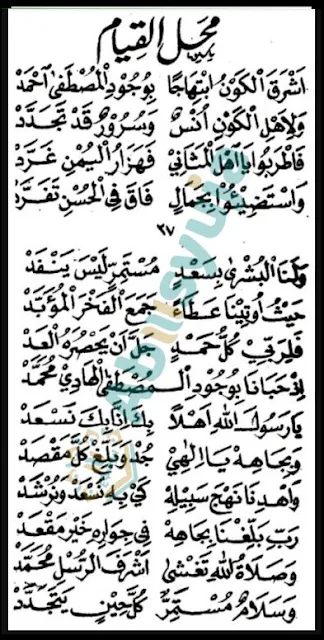 محل القيام
اَشْرَقَ الْكَوْنُ ابْتِهَاجًا بِوُجُودِ الْمُصْطَفَى احْمَدْ
وَلِأَهْلِ الْكَوْنِ اُنْسٌ وَسُرُورٌ قَدْ تَجَدَّدْ
فَاطْرَبُوا يَا اَهْلَ الْمَثَانِي فَهَزَارُ الْيُمْنِ غَرَّدْ
وَاسْتَضِيْئُوْا بِجَمَالٍ فَاقَ فِي الْحُسْنِ تَفَرَّدْ
٣٧
وَلَنَا الْبُشْرَى بِسَعْدٍ مُسْتَمِرٍّ لَيْسَ يَنْفَدْ
حَيْثُ اُوتِيْنَا عَطَاءً جَمَعَ الْفَخْرَ الْمُؤَبَّدْ
فَلِرَبِّي كُلُّ حَمْدٍ جَلَّ اَنْ يَحْصُرَهُ الْعَدْ
اِذْ حَبَانَا بِوُجُودِ الْمُصْطَفَى الْهَادِي مُحَمَّدْ
يَا رَسُوْلَ اللهِ اَهْلًا بِكَ اِنَّا بِكَ نَسْعَدْ
وَبِجَاهِهْ يَا اِلٰهِيْ جُدْ وَبَلِّغْ كُلَّ مَقْصَدْ
وَاهْدِنَا نَهْجَ سَبِيْلِهْ كَيْ بِهِ نَسْعَدْ وَنُرْشَدْ
رَبِّ بَلِّغْنَا بِجَاهِهْ فِي جِوَارِهِ خَيْرَ مَقْعَدْ
وَصَلَاةُ اللهِ تَغْشٰى اَشْرَفَ الرُّسْلِ مُحَمَّدْ
وَسَلَامٌ مُسْتَمِرٌّ كُلَّ حِيْنٍ يَتَجَدَّدْ
Abusyuja